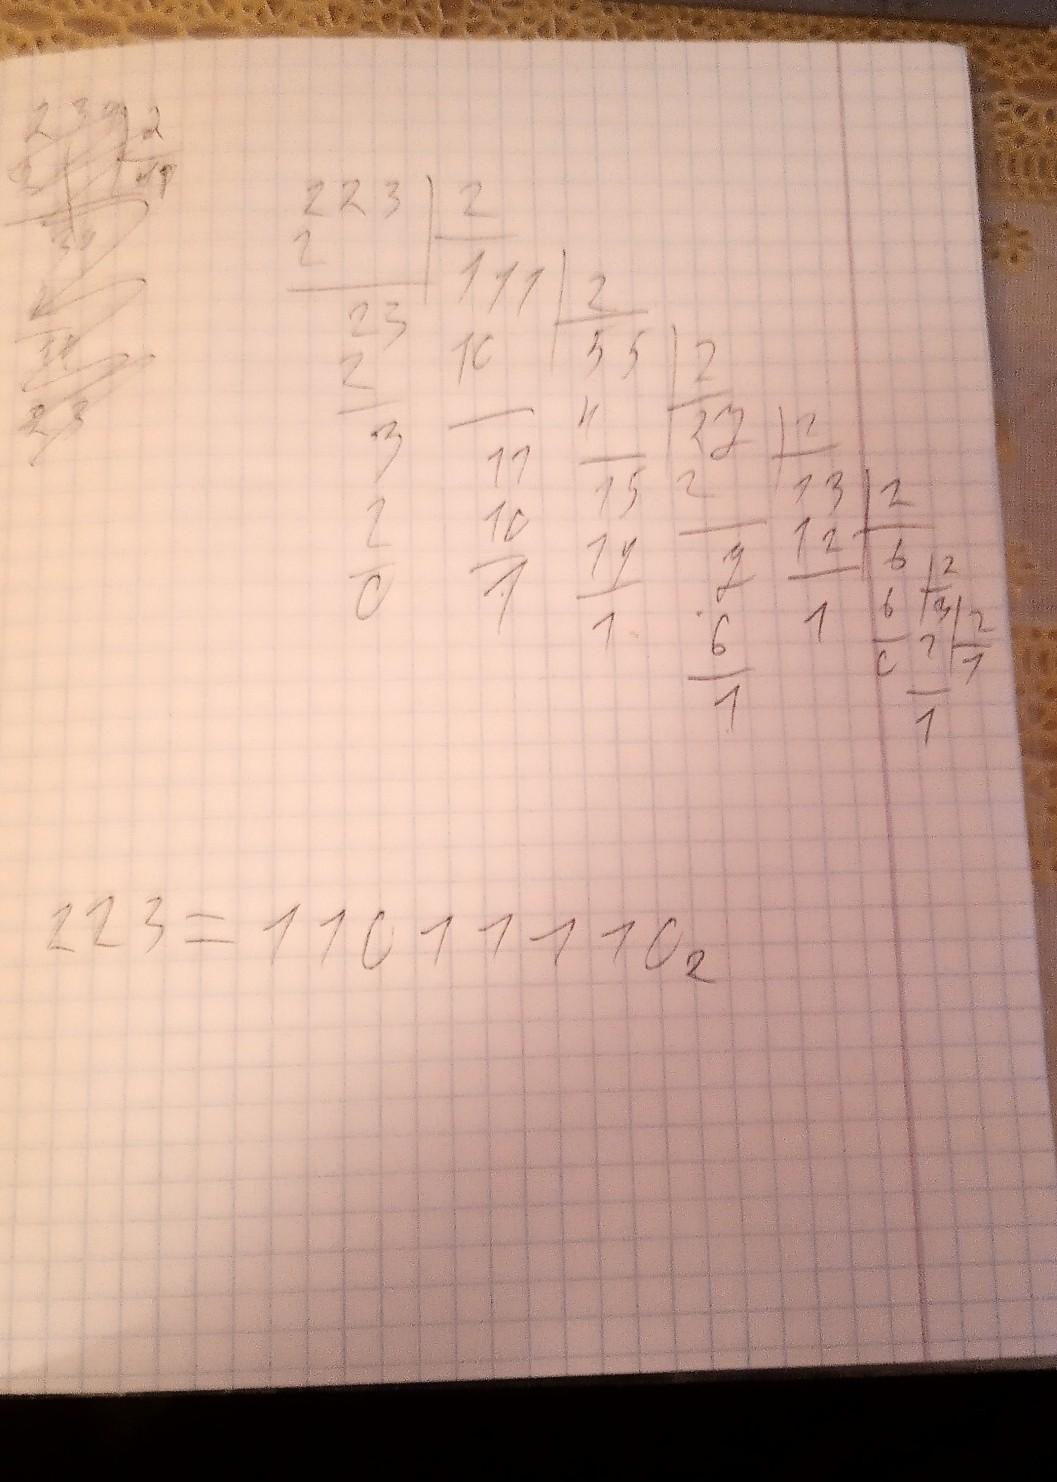 223 2
2 111 2
23 10 55 2
2 4 27 2
3 11 15 2 13 2
2 10 14 7 12 6 2
0 1 1 6 1 6 3 2
1 0 2 1
1
223 = 11011110₂